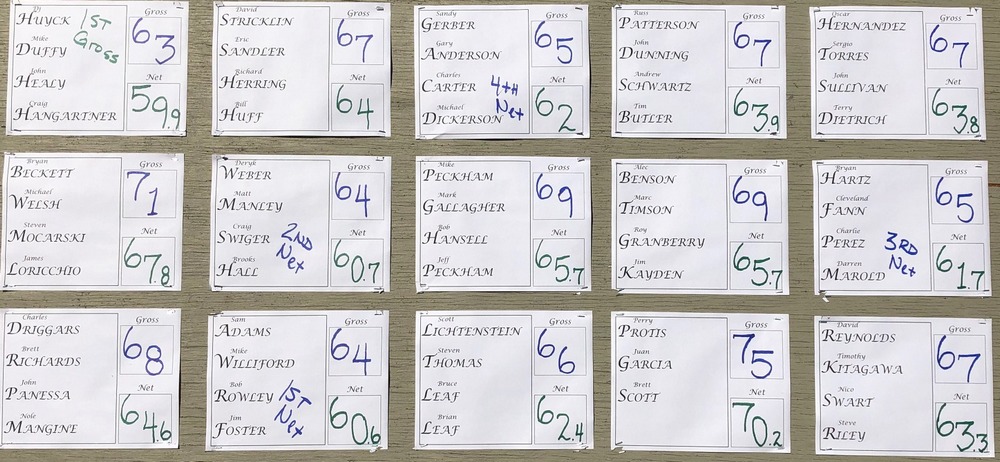 DJ
HUYCK 1ST Gross 63
Mike
DUFFY
John
HEALY
Craig
HANGARTNER
Net
59.9
David
STRICKLIN
Gross
67
Eric
SANDLER
Richard
HERRING
Bill
HUFF
Net
64
Sandy
GERBER
Gross
65
Gary
ANDERSON
Charles
CARTER
Michael
DICKERSON
4TH Net
Net
62
Russ
PATTERSON
Gross
67
John
DUNNING
Andrew
SCHWARTZ
Tim
BUTLER
Net
63.9
Oscar
HERNANDEZ
Gross
67
Sergio
TORRES
John
SULLIVAN
Terry
DIETRICH
Net
63.8
Bryan
BECKETT
Gross
71
Michael
WELSH
Steven
MOCARSKI
James
LORICCHIO
Net
67.8
Deryk
WEBER
Gross
64
Matt
MANLEY
Craig
SWIGER
Brooks
HALL
2ND Net
Net
60.7
Mike
PECKHAM
Gross
69
Mark
GALLAGHER
Bob
HANSELL
Jeff
PECKHAM
Net
65.7
Alec
BENSON
Gross
69
Marc
TIMSON
Roy
GRANBERRY
Jim
KAYDEN
Net
65.7
Bryan
HARTZ
Gross
65
Cleveland
FANN
Charlie
PEREZ
Darren
MAROLD
3RD Net
Net
61.7
Charles
DRIGGARS
Gross
68
Brett
RICHARDS
John
PANESSA
Nole
MANGINE
Net
64.6
Sam
ADAMS
Gross
64
Mike
WILLIFORD
Bob
ROWLEY
Jim
FOSTER
1ST Net
Net
60.6
Scott
LICHTENSTEIN
Gross
66
Steven
THOMAS
Bruce
LEAF
Brian
LEAF
Net
62.4
Perry
PROTIS
Gross
75
Juan
GARCIA
Brett
SCOTT
Net
70.2
David
REYNOLDS
Gross
67
Timothy
KITAGAWA
Nico
SWART
Steve
RILEY
Net
63.3